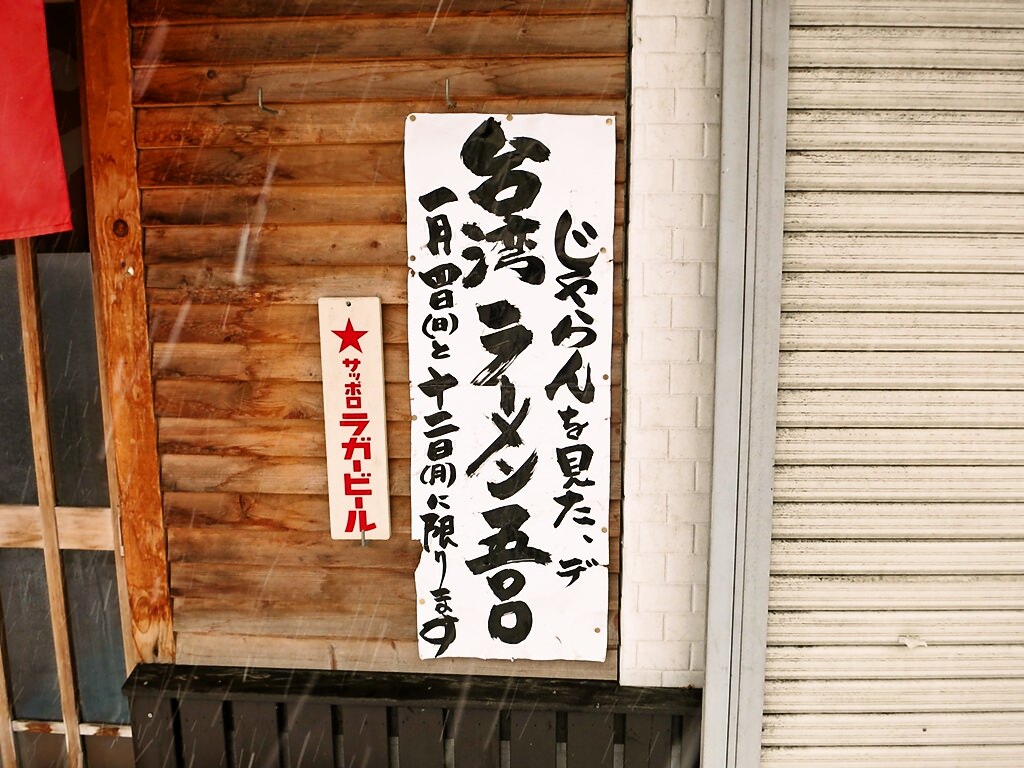 じゃらんを見た、デ
台湾ラーメン五〇〇
一月四日(日)と十二日(月)に限ります
★サッポロラガービール